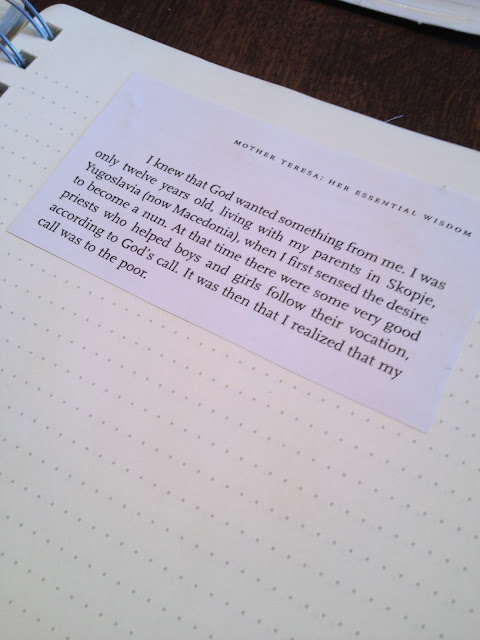 MOTHER TERESA: HER ESSENTIAL WISDOM
I knew that God wanted something from me. I was
only twelve years old, living with my parents in Skopje,
Yugoslavia (now Macedonia), when I first sensed the desire
to become a nun. At that time there were some very good
priests who helped boys and girls follow their vocation,
according to God's call. It was then that I realized that my
call was to the poor.